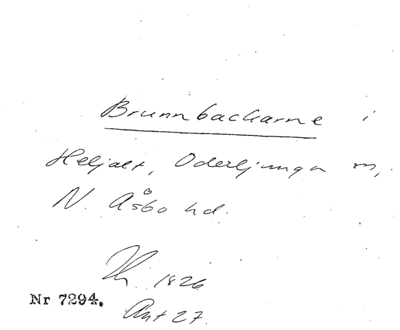 Brunnbackarne i
Heljalt, Oderljunga sn,
N. Åsbo hd.
1826
Nr 7294.
Akt 27.